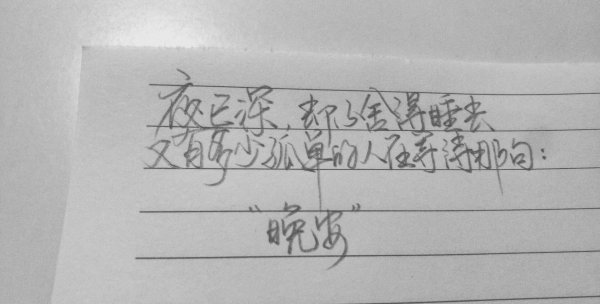 夜已深，却不舍得睡去
又有多少孤单的人在等待那句：
“晚安”